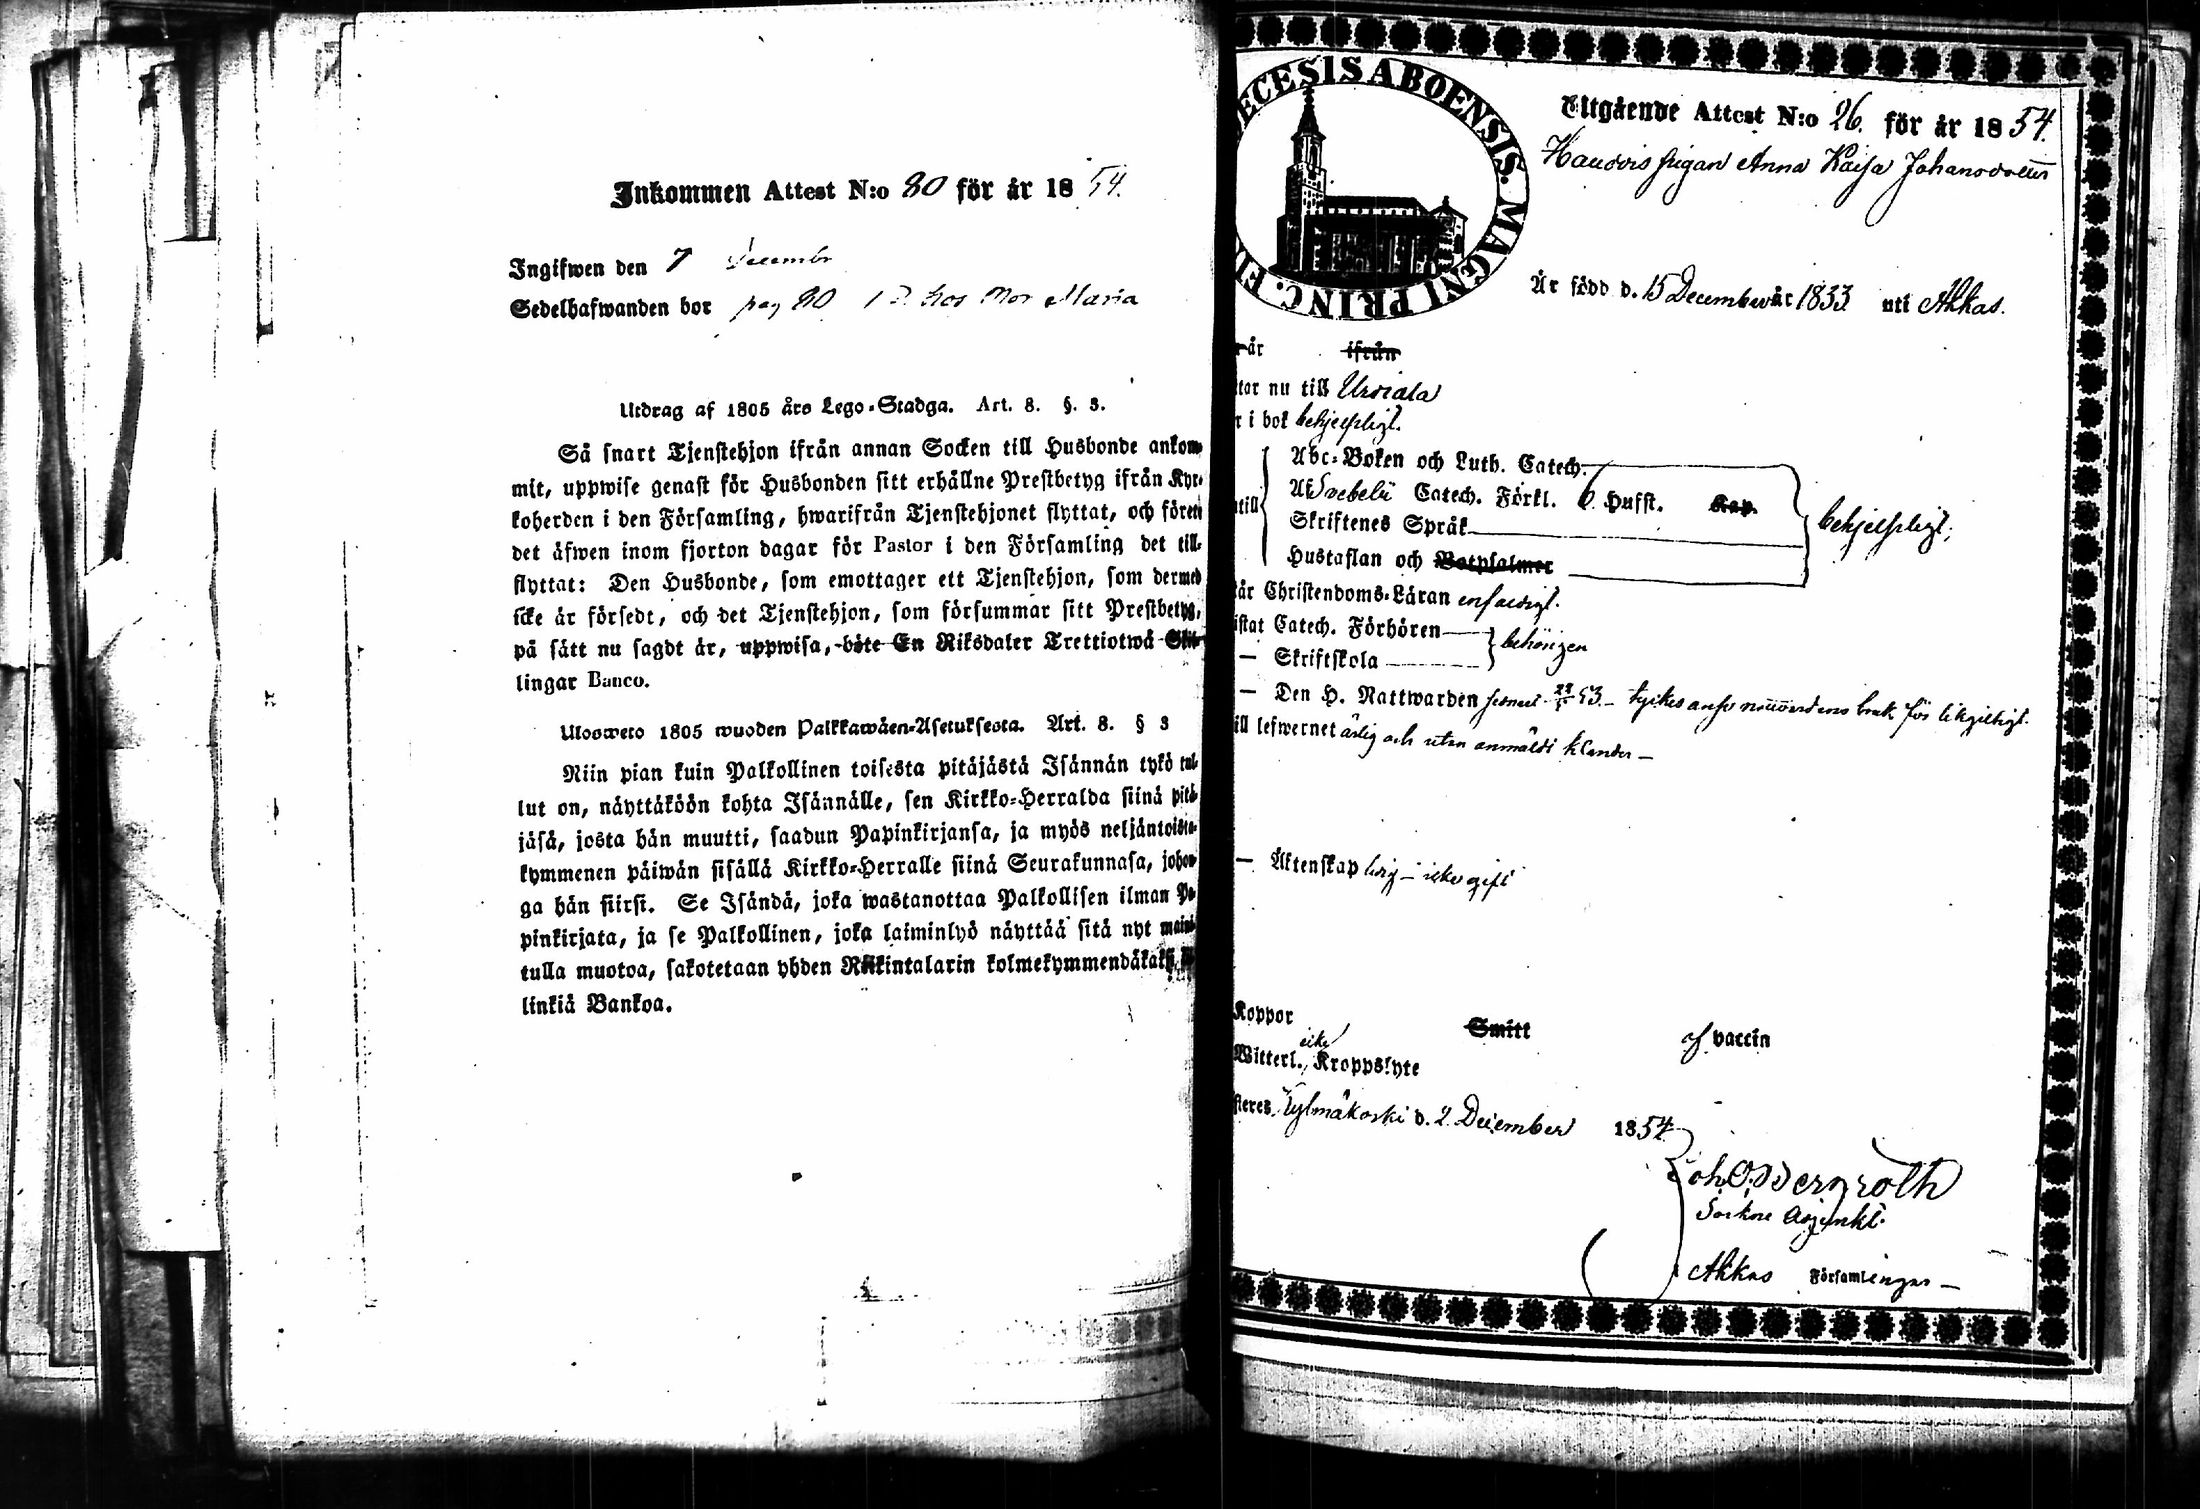 Inkommen Attest N:o 80 för år 1854.
Ingifwen den 7 Decembr
Sedelhafwanden bor pag 80 hos Mor Maria
Utdrag af 1805 års Lego-Stadga. Art. 8. §. 3.
Så snart Tjenstehjon ifrån annan Socken till Husbonde ankom-
mit, uppwise genast för Husbonden sitt erhållne Prestbetyg ifrån Kyr-
koherden i den Församling, hwarifrån Tjenstehjonet flyttat, och förete
det äfwen inom fjorton dagar för Pastor i den Församling det till-
flyttat: Den Husbonde, som emottager ett Tjenstehjon, som dermed
icke är försedt, och det Tjenstehjon, som försummar sitt Prestbetyg,
på sätt nu sagdt är, uppwisa, böte En Riksdaler Trettiotwå Skil-
lingar Banco.
Ulosweto 1805 wuoden Palkkawäen-Asetuksesta. Art. 8. § 3
Niin pian kuin Palkollinen toisesta pitäjästä Isännän tykö tul-
lut on, näyttäköön kohta Isännälle, sen Kirkko-Herralda siinä pitä-
jäsä, josta hän muutti, saadun Papinkirjansa, ja myös neljäntoista-
kymmenen päiwän sisällä Kirkko-Herralle siinä Seurakunnasa, johon-
ga hän siirsi. Se Isändä, joka wastanottaa Palkollisen ilman Pa-
pinkirjata, ja se Palkollinen, joka laiminlyö näyttää sitä nyt maini-
tulla muotoa, sakotetaan yhden Riikintalarin kolmekymmendäkaksi
linkiä Bankoa.
ECESIS ABOENSIS. MAGNI PRINC. FI
Utgående Attest N:o 26. för år 1854.
Anna Kaisa Johansdotter
Är född d. 15 December år 1833 uti Akkas.
är ifrån
tar nu till Urdiala
r i bok behjelpligt.
till Abc-Boken och Luth. Catech.
Af Svebelii Catech. Förkl. 6 Hufst. Kap.
Skriftenes Språk
behjelpligt;
Hustaflan och Botpsalmer
år Christendoms-Läran enfaldigt.
istat Catech. Förhören
— Skriftskola
behörigen
— Den H. Nattwarden senast 53 —
ill lefwernet ärlig och utan anmäldt klander —
— Äktenskap ledig — icke gift
Koppor Smitt af vaccin
Witterl. icke Kroppslyte
steres Kylmäkoski d. 2 December 1854
Sockne Adjunkt.
Akkas Församlingar —